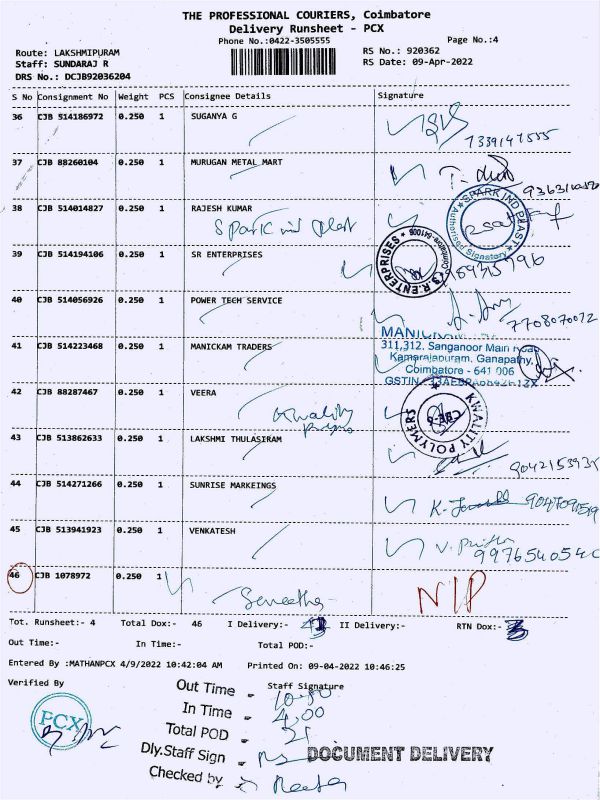 THE PROFESSIONAL COURIERS, Coimbatore
Delivery Runsheet - PCX
Phone No.:0422-3505555
Page No.:4
Route: LAKSHMIPURAM
RS No.: 920362
Staff: SUNDARAJ R
RS Date: 09-Apr-2022
DRS No.: DCJB92036204
S No Consignment No Weight PCS Consignee Details Signature
36 CJB 514186972 0.250 1 SUGANYA G
7339147555
37 CJB 88260104 0.250 1 MURUGAN METAL MART
38 CJB 514014827 0.250 1 RAJESH KUMAR
Spark ind plast
SPARK IND PLAST
Authorised Signatory
39 CJB 514194106 0.250 1 SR ENTERPRISES
S.R.ENTERPRISES
Coimbatore-641006
40 CJB 514056926 0.250 1 POWER TECH SERVICE
7708070072
41 CJB 514223468 0.250 1 MANICKAM TRADERS
311,312, Sanganoor Main Road
Kamarajapuram, Ganapathy,
Coimbatore - 641 006
GSTIN
42 CJB 88287467 0.250 1 VEERA
Kwality
KWALITY POLYMERS
CBE-6
43 CJB 513862633 0.250 1 LAKSHMI THULASIRAM
44 CJB 514271266 0.250 1 SUNRISE MARKEINGS
45 CJB 513941923 0.250 1 VENKATESH
46 CJB 1078972 0.250 1
NIP
Tot. Runsheet:- 4 Total Dox:- 46 I Delivery:- II Delivery:- RTN Dox:-
Out Time:- In Time:- Total POD:-
Entered By :MATHANPCX 4/9/2022 10:42:04 AM Printed On: 09-04-2022 10:46:25
Verified By Staff Signature
PCX
Out Time - 10.50
In Time - 4.00
Total POD - 21
Dly.Staff Sign -
DOCUMENT DELIVERY
Checked by